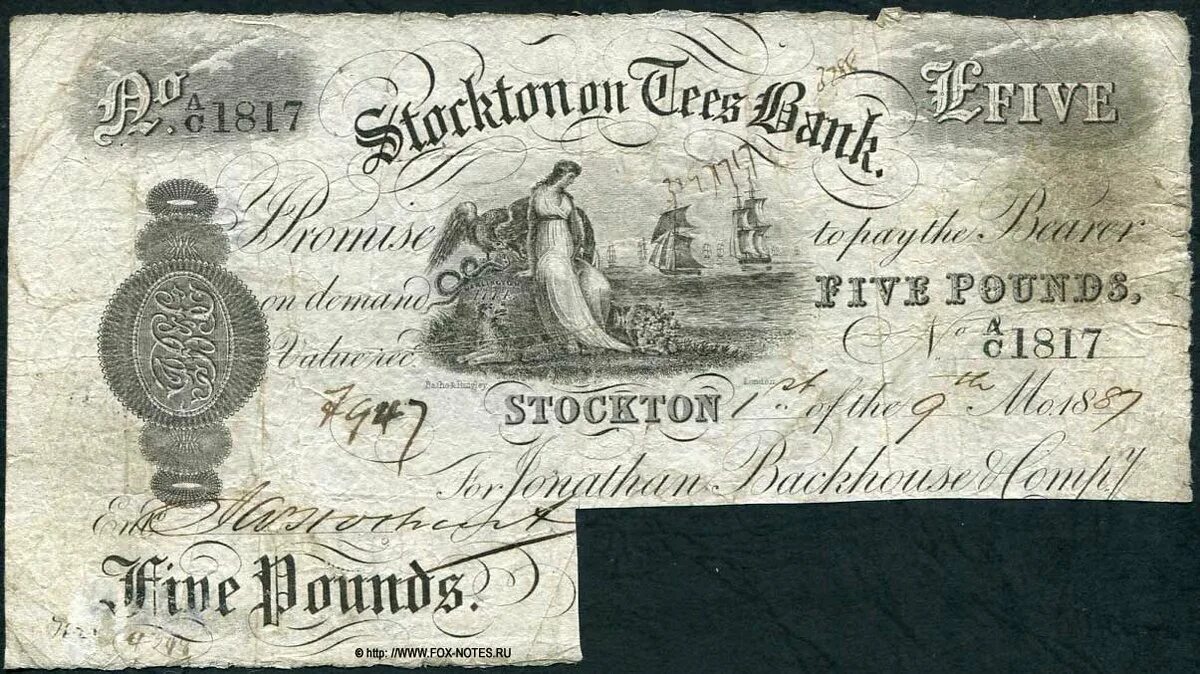 No. A/C 1817
Stockton on Tees Bank.
£FIVE
3788
I Promise to pay the Bearer
on demand FIVE POUNDS,
Value rec. No A/C 1817
London
7947
STOCKTON 1st of the 9th Mo. 1887
For Jonathan Backhouse & Compy
Entd
Five Pounds.
© http: //WWW.FOX-NOTES.RU